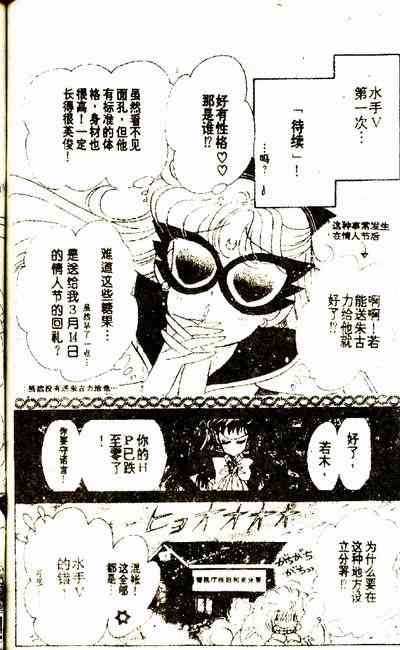 水手V
第一次…
「待续」!
…吗?
好有性格♡♡
那是谁!?
虽然看不见
面孔,但他
有标准的体
格,身材也
很高!一定
长得很英俊!
这种事常发生
在情人节后
啊啊!若
能送朱古
力给他就
好了!?
难道这些糖果…
是送给我3月14日
的情人节的回礼?
虽然早了一点…
虽然没有送朱古力给他…
好了,
若木,
你的H
P已跌
至零了
!
你要守诺言…
为什么要在
这种地方设
立分署!?
ヒョオオオオ
がちがち
がちがち
混帐!
这全部
都是…
水手V
的错!